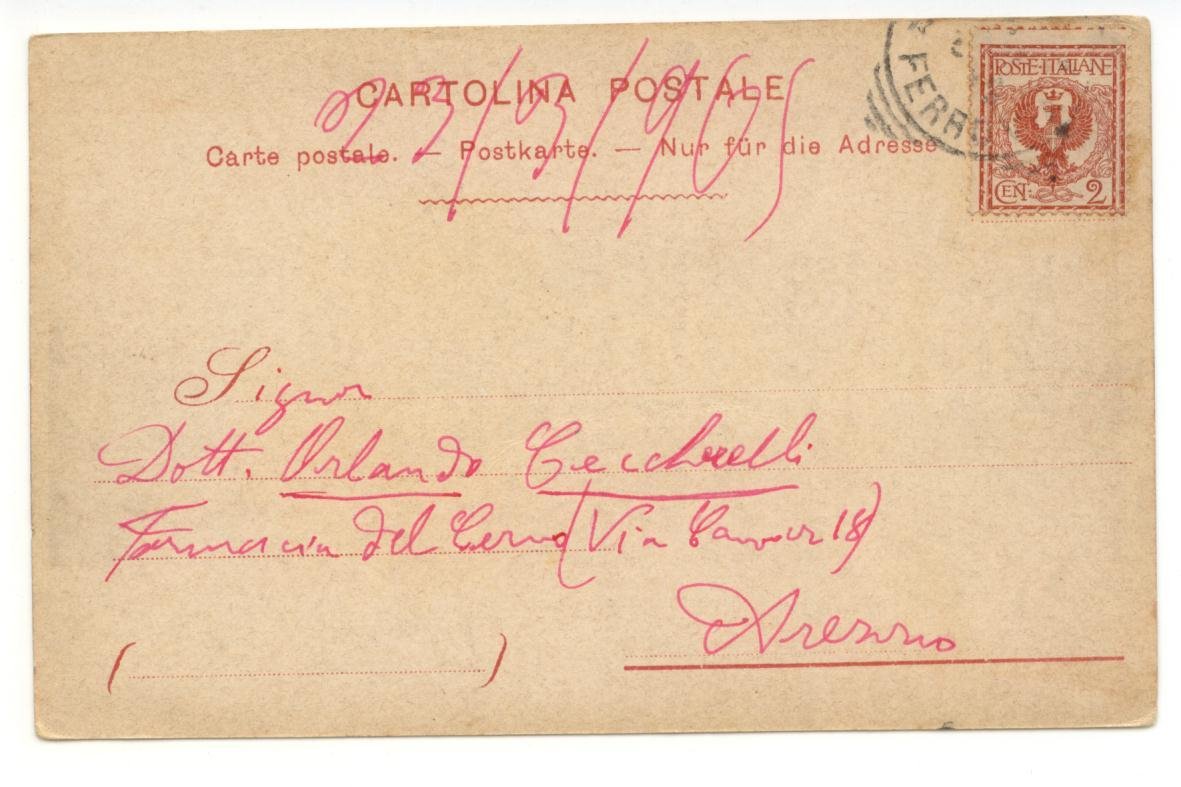 CARTOLINA POSTALE
23/3/1905
Carte postale. — Postkarte. — Nur für die Adresse
POSTE·ITALIANE
CEN: 2
FERRO
Signor
Dott. Orlando Ceccherelli
Farmacia del Cervo (Via Cavour 18)
Arezzo